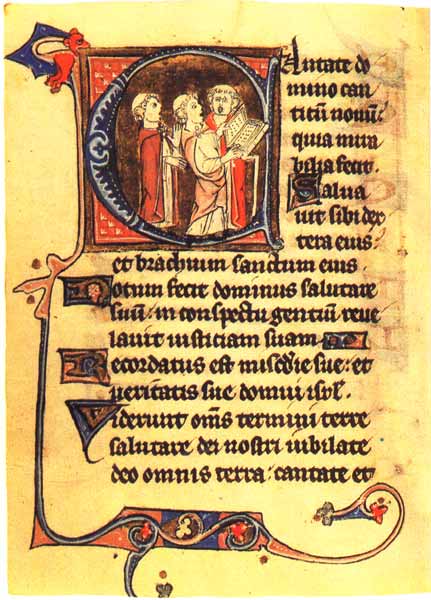 CAntate do
mino can
ticū nouū:
quia mira
bilia fecit.
Salua
uit sibi dex
tera eius:
et brachium sanctum eius.
Notum fecit dominus salutare
suū: in conspectu gentiū reue
lauit iusticiam suam
Recordatus est misc̄die sue: et
ueritatis sue domui isrl̄.
Viderunt om̄s termini terre
salutare dei nostri iubilate
deo omnis terra: cantate et